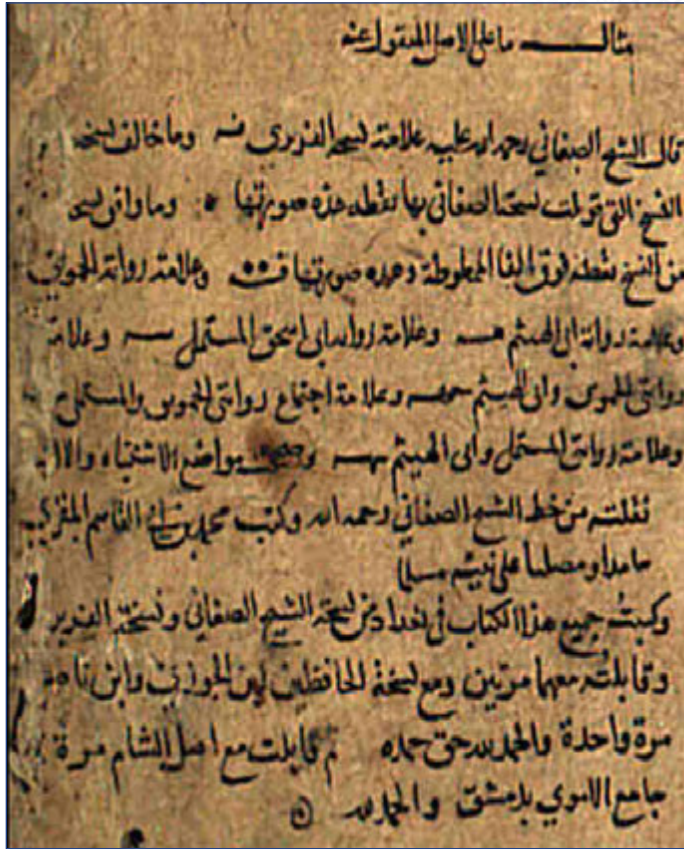 مثال ما على الاصل المنقول عنه
قال الشيخ الصغاني رحمه الله عليه علامة نسخة الفربري ف وما خالف نسخة
النسخ التي قوبلت نسخة الصغاني بها نقطة هذه صورتها • وما وافق نسخة
من النسخ نقطة فوق الفا المطوطة وهذه صورتها ف وعلامة رواية الحموي
وعلامة رواية ابى الهيثم هـ وعلامة رواية ابى اسحق المستملى سـ وعلامة
روايتى الحموى وابى الهيثم حهـ وعلامة اجتماع روايتى الحموى والمستملى
وعلامة روايتى المستملى وابى الهيثم سهـ مواضع الاشتباه
نقلته من خط الشيخ الصغاني رحمه الله وكتب محمد بن القاسم
حامدا ومصليا على نبيه مسلما
وكتبت جميع هذا الكتاب فى بغداد من نسخة الشيخ الصغاني ونسخة الفربر
وقابلته معهما مرتين ومع نسخة الحافظين ابن الجوزى وابن
مرة واحدة والحمد لله حق حمده ثم قابلت مع اصل الشام مرة
جامع الاموي بدمشق والحمد لله